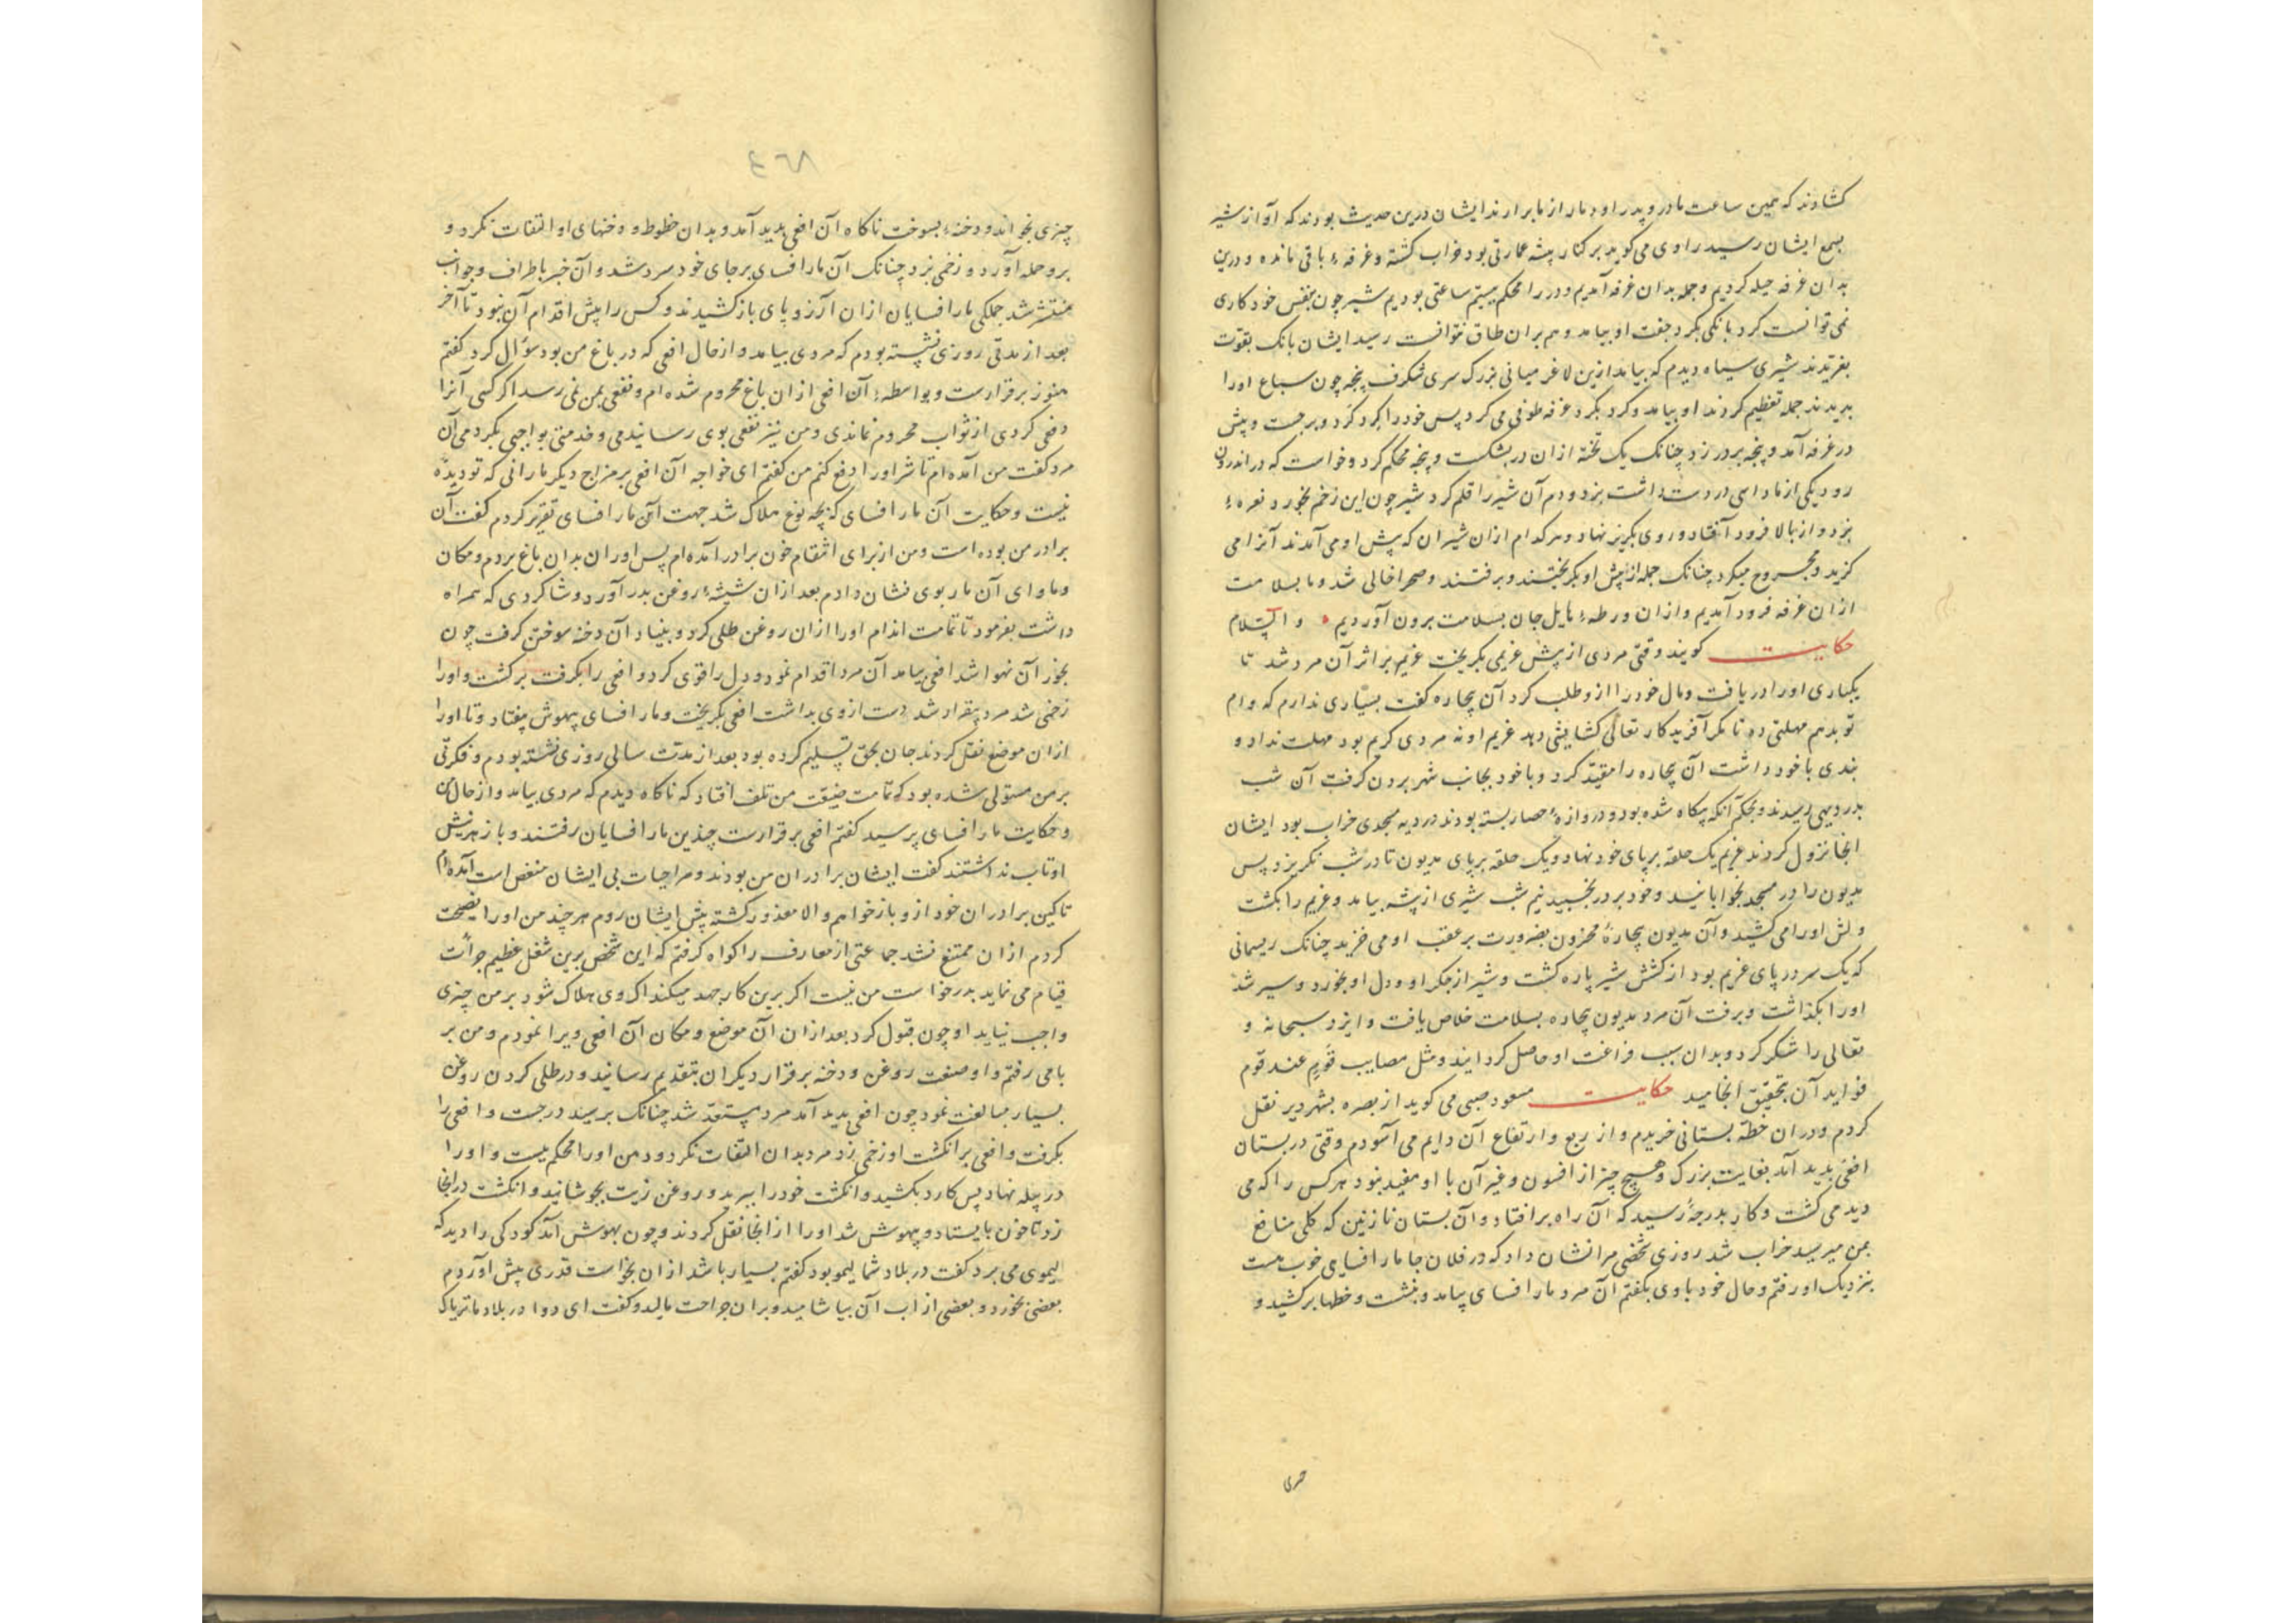 کشادند که همین ساعت مادر و پدر او دمار از ما برارند ایشان درین حدیث بودند که آواز شیر
بسمع ایشان رسید راوی می کوید بر کنار بیشه عمارتی بود خراب کشته و غرفهٔ باقی مانده و درین
بدان غرفه حیله کردیم و جمله بدان غرفه آمدیم و در را محکم ببستیم ساعتی بودیم شیر چون بنفس خود کاری
نمی توانست کرد بانکی بکرد جفت او بیامد و هم بران طاق نتوانست رسید ایشان بانک بقوت
بغریدند شیری سیاه دیدم که بیامد ازین لاغر میانی بزرک سری شکرف پنجه چون سباع اورا
بدیدند جمله تعظیم کردند او بیامد و کرد بکرد غرفه طوفی می کرد پس خود را کرد کرد و برجست و پیش
در غرفه آمد و پنجه بر در زد چنانک یک تخته ازان در بشکست و پنجه محکم کرد و خواست که در اندرون
رود یکی از ما داسی در دست داشت بزد و دم آن شیر را قلم کرد شیر چون این زخم بخورد نعرهٔ
بزد و از بالا فرود افتاد و روی بکریز نهاد و هر کدام ازان شیران که پیش او می آمدند آنرا می
کزید و مجروح میکرد چنانک جمله از پیش او بکریختند و برفتند و صحرا خالی شد و ما بسلامت
ازان غرفه فرود آمدیم و ازان ورطهٔ هایل جان بسلامت برون آوردیم والسلام
حکایت کویند وقتی مردی از پیش غریمی بکریخت غریم بر اثر آن مرد شد تا
یکباری اورا دریافت و مال خود را ازو طلب کرد آن بیچاره کفت بسیاری ندارم که وام
تو بدهم مهلتی ده تا مکر آفریدکار تعالی کشایشی دهد غریم او نه مردی کریم بود مهلت نداد و
بندی با خود داشت آن بیچاره را مقید کرد و با خود بجانب شهر بردن کرفت آن شب
بدر دیهی رسیدند و بحکم آنکه بیکاه شده بود و دروازهٔ حصار بسته بودند در دیه مسجدی خراب بود ایشان
انجا نزول کردند غریم یک حلقه بر پای خود نهاد و یک حلقه بر پای مدیون تا در شب نکریزد پس
مدیون را در مسجد بخوابانید و خود بر در بخسپید نیم شب شیری از بیشه بیامد و غریم را بکشت
و لش اورا می کشید و آن مدیون بیچارهٔ محزون بضرورت بر عقب او می خزید چنانک ریسمانی
که یک سر در پای غریم بود از کشش شیر پاره کشت و شیر از جکر او و دل او بخورد و سیر شد
اورا بکذاشت و برفت آن مرد مدیون بیچاره بسلامت خلاص یافت و ایزد سبحانه و
تعالی را شکر کرد و بدان سبب فراغت او حاصل کردانید و مثل مصایب قوم عند قوم
فواید آن بتحقیق انجامید حکایت مسعود صبی می کوید از بصره بشهر دیر نقل
کردم و دران خطه بستانی خریدم و از ربع و ارتفاع آن دایم می آسودم وقتی در بستان
افعی بدید آمد بغایت بزرک و هیچ چیز از افسون و غیر آن با او مفید نبود هر کس را که می
دید می کشت و کار بدرجهٔ رسید که آن راه بر افتاد و آن بستان نازنین که کلی منافع
بمن میرسید خراب شد روزی شخصی مرا نشان داد که در فلان جا مار افسایی خوب هست
بنزدیک او رفتم و حال خود با وی بکفتم آن مرد مار افسای بیامد و بنشست و خطها بر کشید و
٤٦٨
چیزی بخواند و دخنهٔ بسوخت ناکاه آن افعی پدید آمد و بدان خطوط و دخنهای او التفات نکرد و
برو حمله آورد و زخمی بزد چنانک آن مار افسای بر جای خود سرد شد و آن خبر باطراف و جوانب
منتشر شد جملکی مار افسایان ازان آرزو پای باز کشیدند و کس را پیش اقدام آن نبود تا آخر
بعد از مدتی روزی نشسته بودم که مردی بیامد و از حال افعی که در باغ من بود سؤال کرد کفتم
هنوز برقرارست و بواسطهٔ آن افعی ازان باغ محروم شده ام و نفعی بمن نمی رسد اکر کسی آنرا
دفعی کردی از ثواب محروم نماندی و من نیز نفعی بوی رسانیدمی و خدمتی بواجبی بکردمی آن
مرد کفت من آمده ام تا شر اورا دفع کنم من کفتم ای خواجه آن افعی بر مزاج دیکر مارانی که تو دیدهٔ
نیست و حکایت آن مار افسای که بچه نوع هلاک شد جهت آن مار افسای تقریر کردم کفت آن
برادر من بوده است و من از برای انتقام خون برادر آمده ام پس اوران بدان باغ بردم و مکان
و ماوای آن مار بوی نشان دادم بعد ازان شیشهٔ روغن بدر آورد و شاکردی که همراه
داشت بفرمود تا تمامت اندام اورا ازان روغن طلی کرد و بنیاد آن دخنه سوختن کرفت چون
بخور آن بهوا شد افعی بیامد آن مرد اقدام نمود و دل را قوی کرد و افعی را بکرفت بر کشت و اورا
زخمی شد مرد بیقرار شد دست از وی بداشت افعی بکریخت و مار افسای بیهوش بیفتاد و تا اورا
ازان موضع نقل کردند جان بحق تسلیم کرده بود بعد از مدت سالی روزی نشسته بودم و فکرتی
بر من مستولی شده بود که تمامت ضیعت من تلف افتاد که ناکاه دیدم که مردی بیامد و از حال من
و حکایت مار افسای پرسید کفتم افعی برقرارست چندین مار افسایان رفتند و باز هر نیش
او تاب نداشتند کفت ایشان برادران من بودند و مرا حیات بی ایشان منغص است آمده ام
تا کین برادران خود ازو باز خواهم والا معذور کشته پیش ایشان روم هر چند من اورا نصیحت
کردم ازان ممتنع نشد جماعتی از معارف را کواه کرفتم که این شخص برین شغل عظیم جرأت
قیام می نماید بدرخواست من نیست اکر برین کار جهد میکند اک وی هلاک شود بر من چیزی
واجب نیاید او چون قبول کرد بعد ازان آن موضع و مکان آن افعی ویرا نمودم و من بر
بامی رفتم و او صنعت روغن و دخنه برقرار دیکران بتقدیم رسانید و در طلی کردن روغن
بسیار مبالغت نمود چون افعی بدید آمد مرد مستعد شد چنانک برسید درجست و افعی را
بکرفت و افعی بر انکشت او زخمی زد مرد بدان التفات نکرد و دهن اورا محکم ببست و اورا
در پیله نهاد پس کارد بکشید و انکشت خود را ببرید و روغن زیت بجوشانید و انکشت در انجا
زد تا خون بایستاد و بیهوش شد اورا از انجا نقل کردند و چون بهوش آمد کودکی را دید که
لیموی می برد کفت در بلاد شما لیمو بود کفتم بسیار باشد ازان بخواست قدری پیش آوردم
بعضی بخورد و بعضی از اب آن بیاشامید و بران جراحت مالید و کفت ای دوا در بلاد ما تریاک